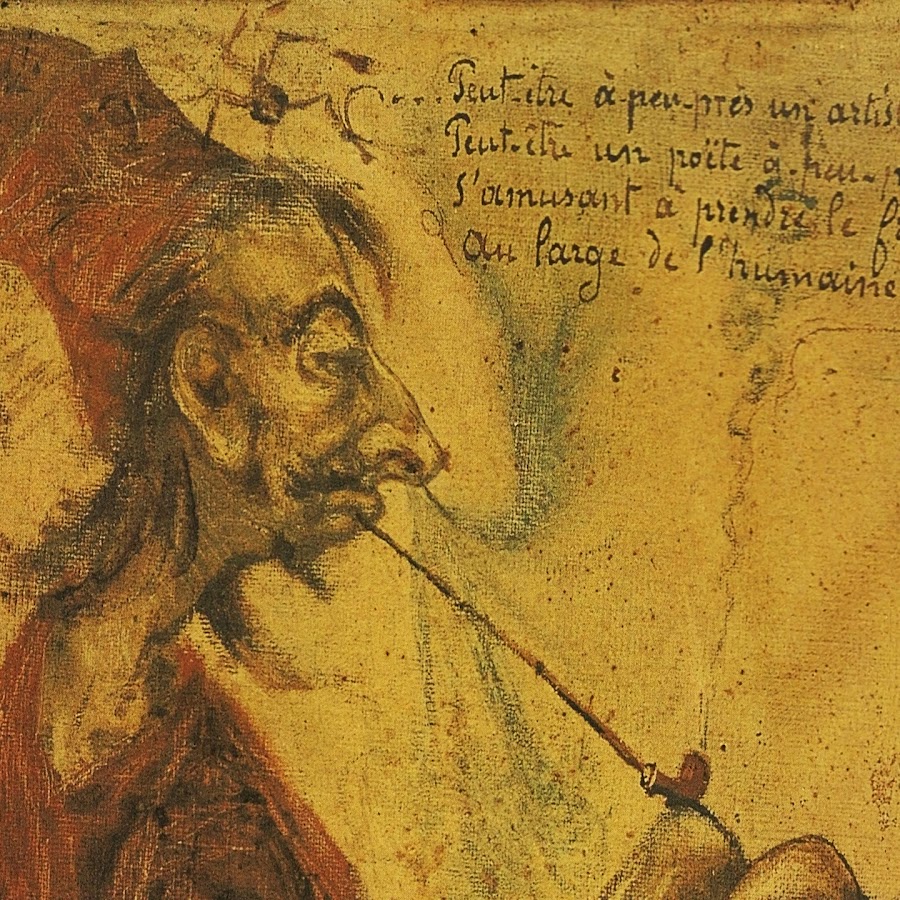 Peut-être à-peu-près un artis
Peut-être un poëte à-peu-p
S'amusant à prendre le fr
Au large de l'humaine